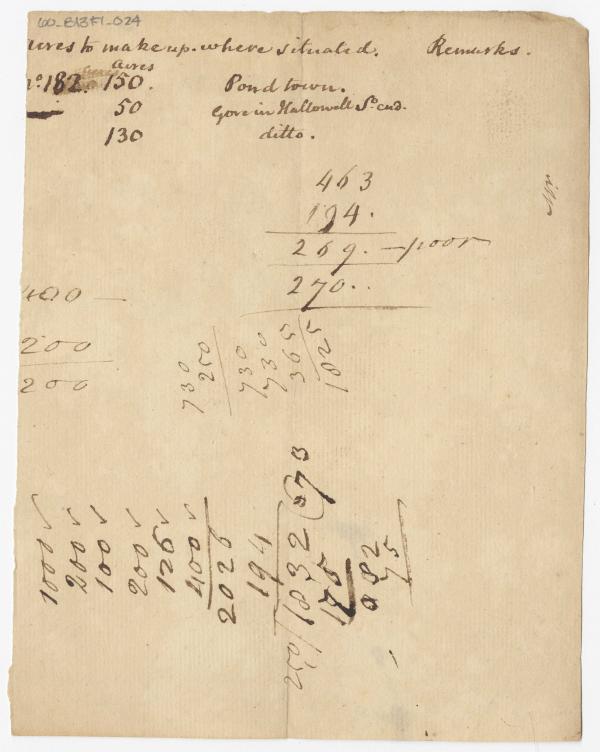 60_B13F1_024
acres to make up. where situated. Remarks.
acres
no. 182. 150. Pond town.
50 Gore in Hallowell So. end.
130 ditto.
463
194.
269. — poor
270..
400 —
200
200
730
250
730
730
365
1825
1000
200
100
200
126
400
2026
194
250/1832(73
175
882
75